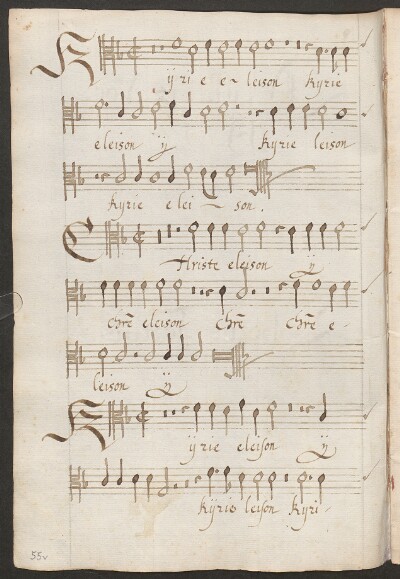 Kÿrie e- leison kyrie
eleison ÿ kyrie leison
kyrie elei - son.
Christe eleison ÿ
chr̃e eleison chr̃e chr̃e e-
leison ÿ
Kÿrie eleison ÿ
kÿrie leison kyri-
55v